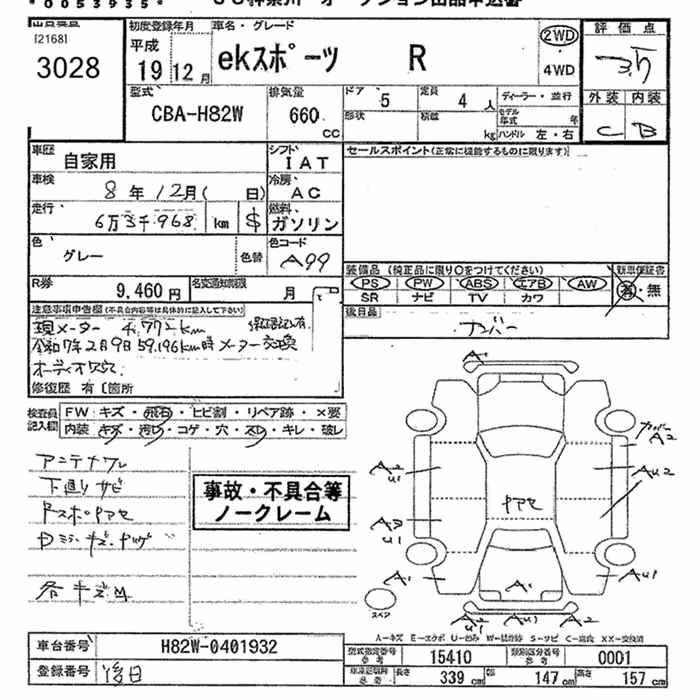 * 0 0 5 3 9 3 5 *
[2168]
3028
初度登録年月
平成
19 12月
車名・グレード
ekスポーツ R
2WD
・
4WD
評価点
3.5
外装 内装
C B
型式
CBA-H82W
排気量
660
CC
ドア
5
定員
4 人
ディーラー・並行
形状
積載
kg
モデル年式
年
ハンドル 左・右
車歴
自家用
シフト
IAT
セールスポイント(正常に機能するものに限ります)
車検
8年12月( 日)
冷房
AC
走行
6万3千968 km
$
燃料
ガソリン
色
グレー
色替
色コード
A99
装備品(純正品に限り○をつけてください)
新車保証書
PS PW ABS エアB AW
有・無
SR ナビ TV カワ
R券
9,460円
名変通知期限
月
後日品
ナンバー
注意事項申告欄(不具合内容等は具体的に記入して下さい)
現メーター 4,772km
令和7年2月9日59,196km時メーター交換
オーディオ欠
修復歴 有〔箇所
検査員記入欄
FW:キズ・飛石・ヒビ割・リペア跡・×要
内装:キズ・汚れ・コゲ・穴・スレ・キレ・破レ
アンテナワレ
下廻りサビ
各キズ凹
事故・不具合等
ノークレーム
A1
A2
A2
U1
AU2
Pアセ
A2
U1
A1
A1
AU1
スペア
A2
U1
AU1
A2
A-キズ E-エクボ U-凹み W-補修跡 S-サビ C-腐食 XX-交換済
車台番号
H82W-0401932
登録番号
後日
型式指定番号
参考
15410
類別区分番号
参考
0001
長さ
339 cm
幅
147 cm
高さ
157 cm